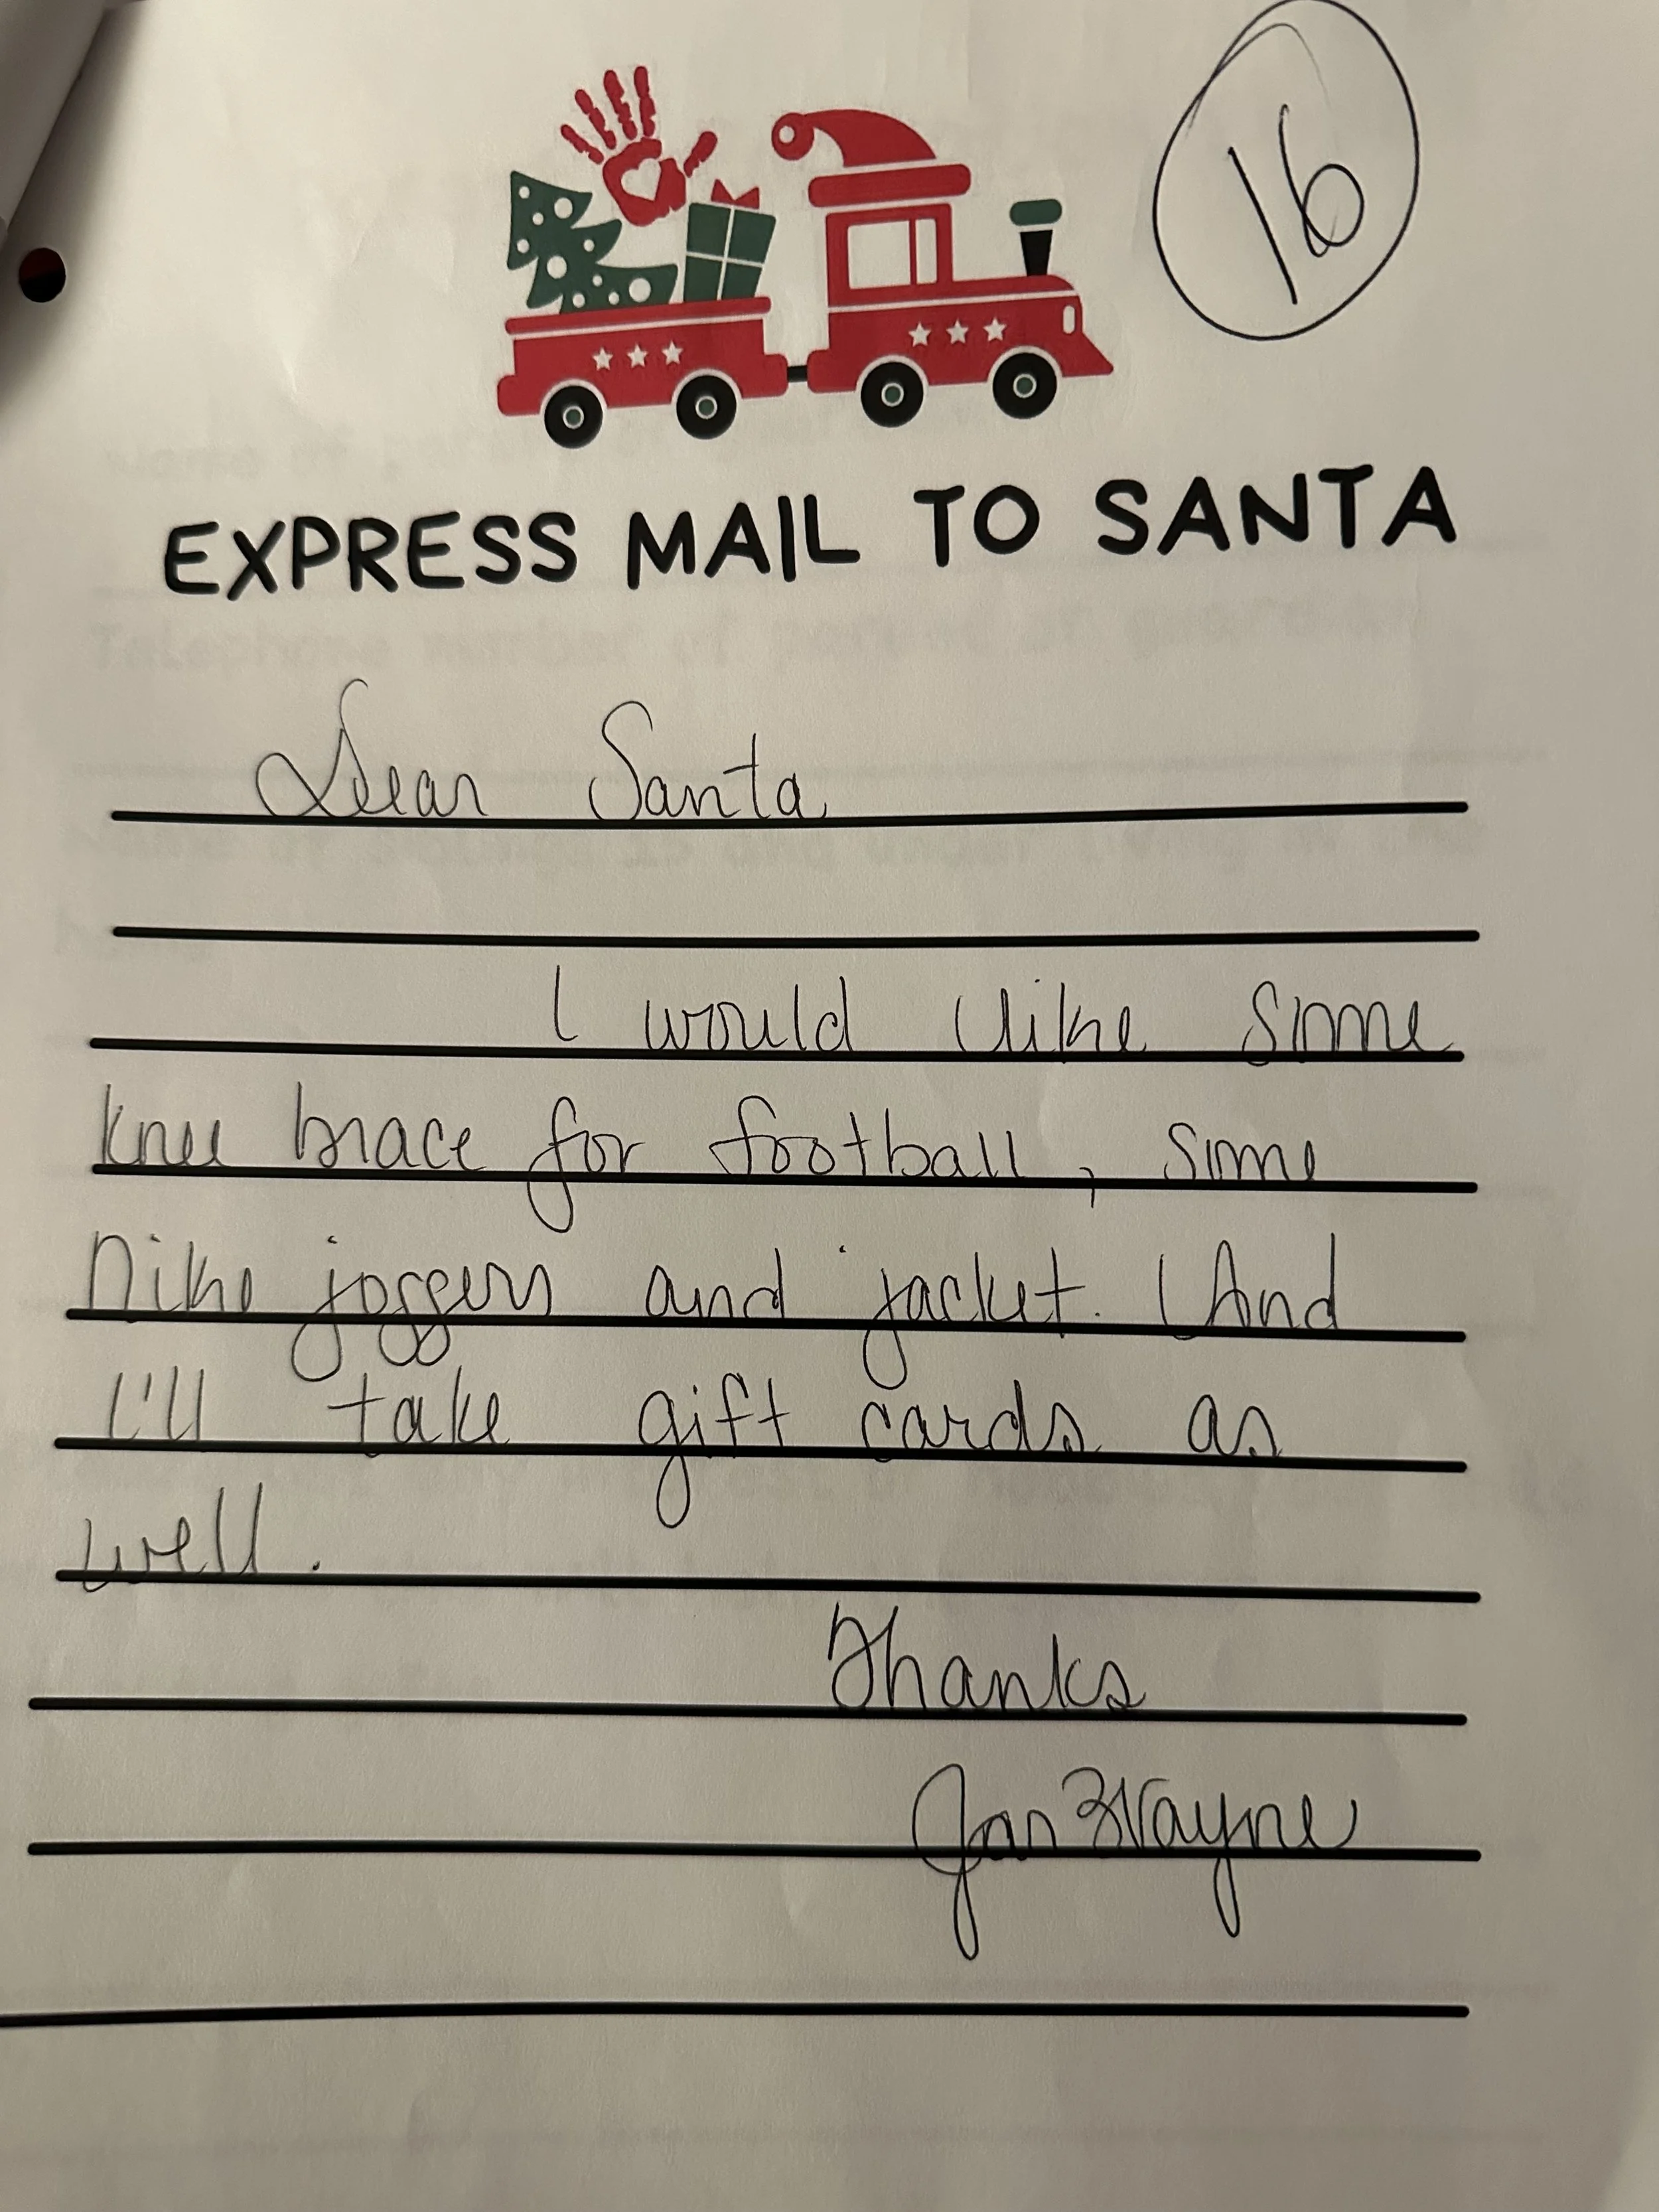 16
EXPRESS MAIL TO SANTA
Dear Santa
I would like some
knee brace for football, some
Nike joggers and jacket. (And
I'll take gift cards as
well.
Thanks
Wayne